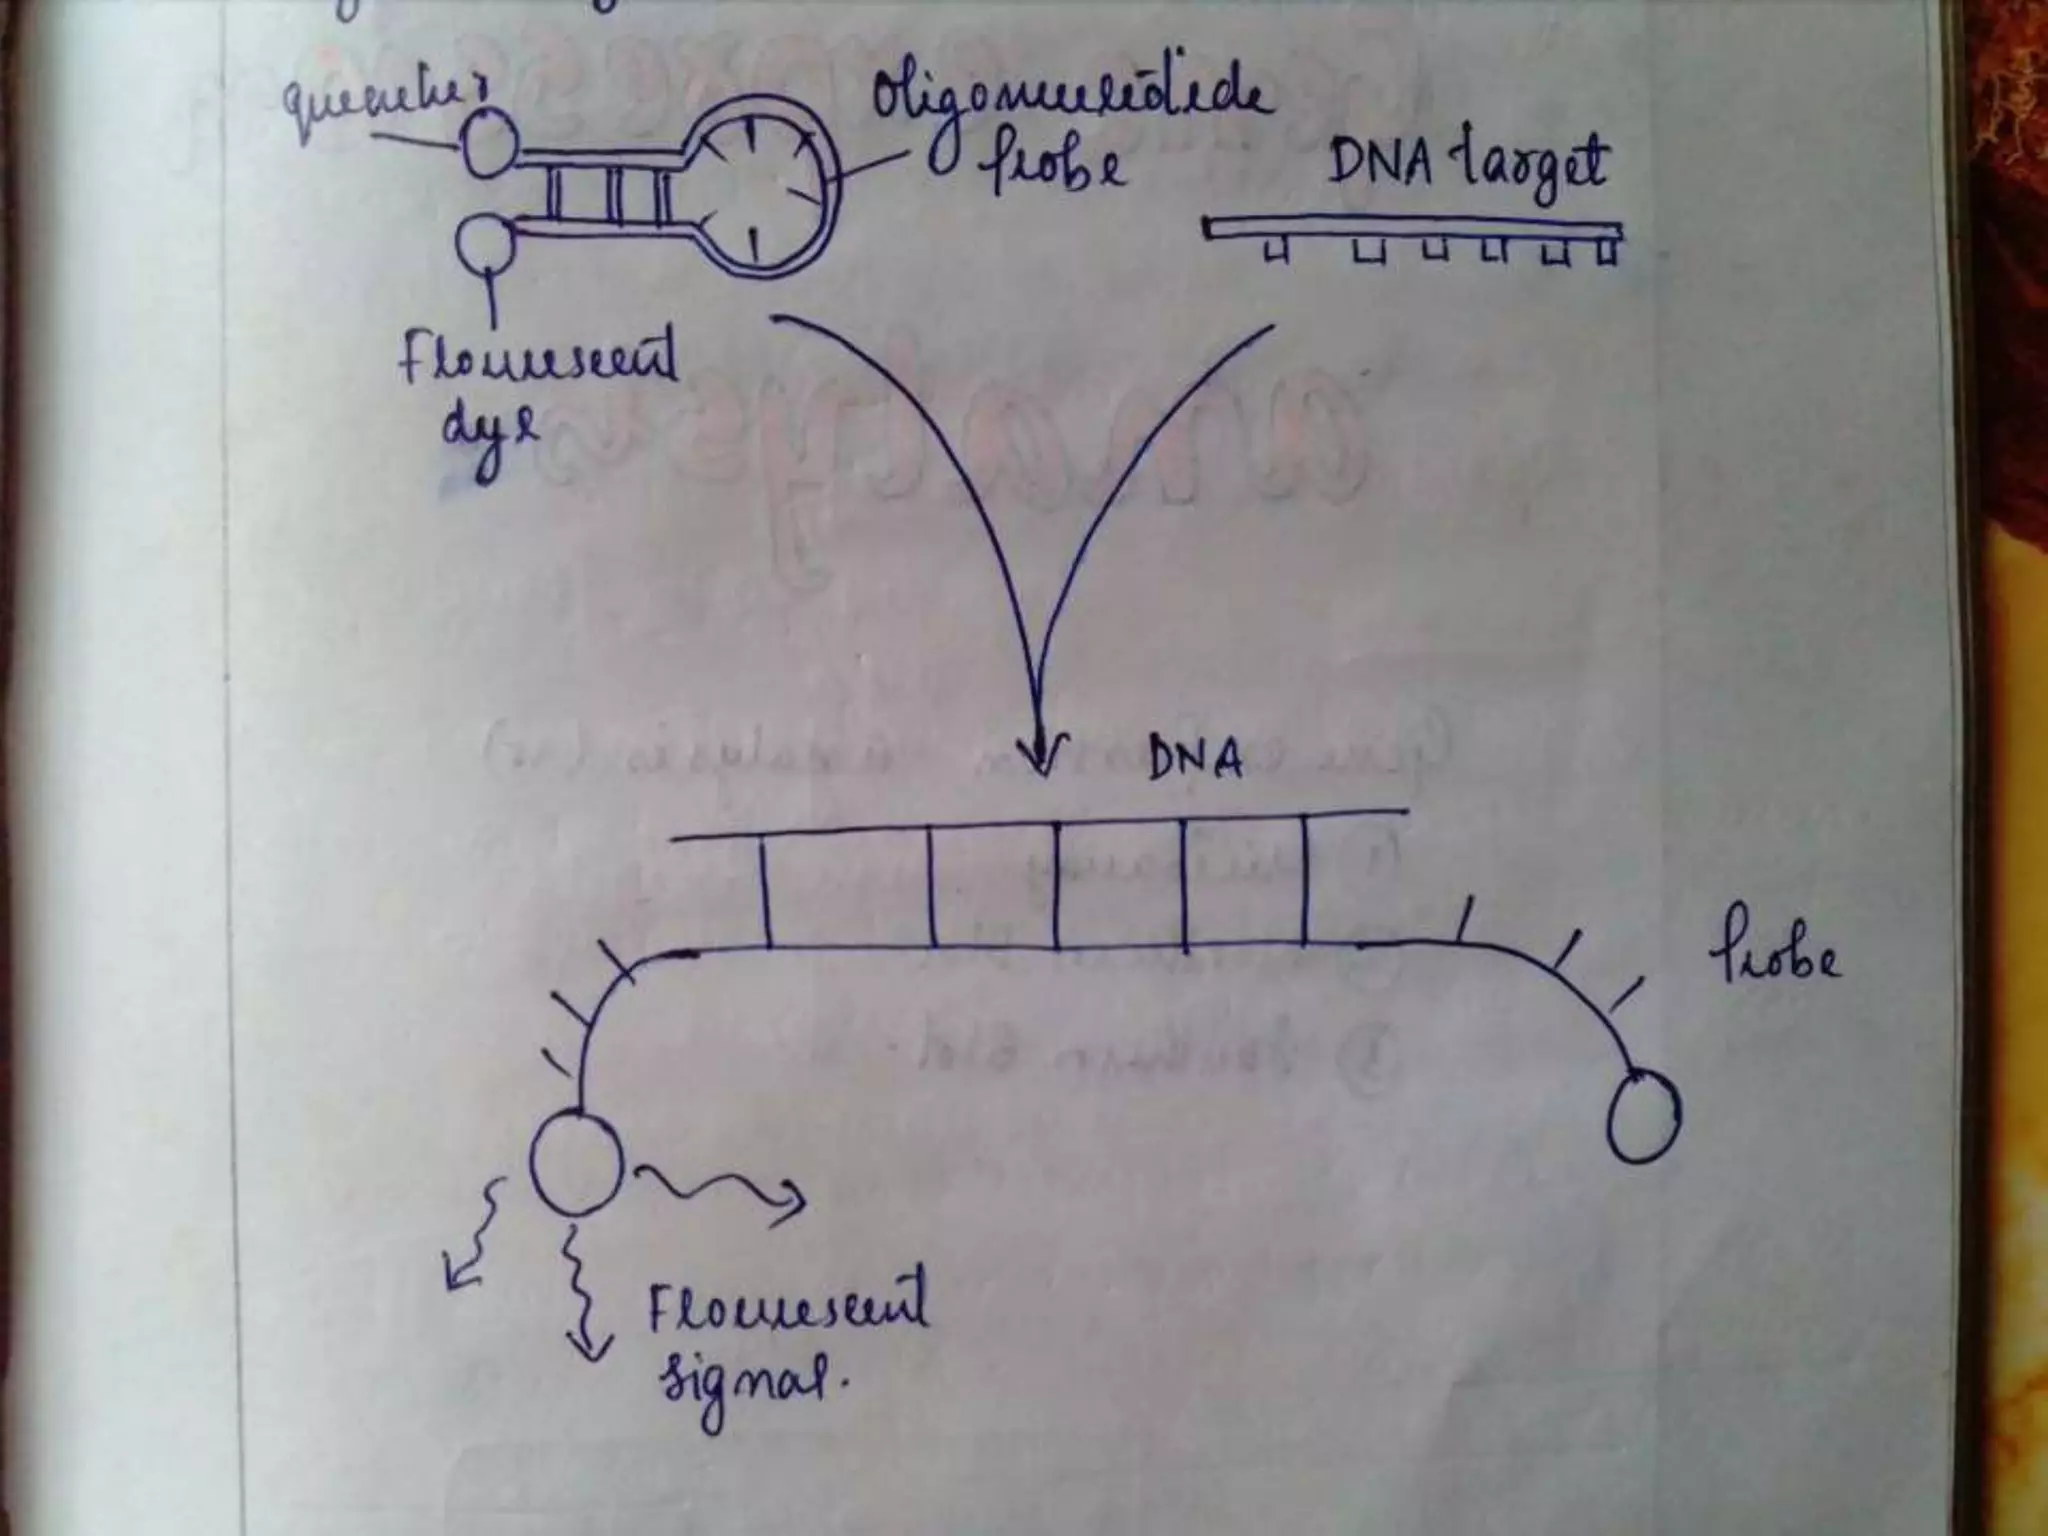 quencher
Oligonucleotide
Probe
DNA target
Flourescent
dye
DNA
Probe
Flourescent
signal.